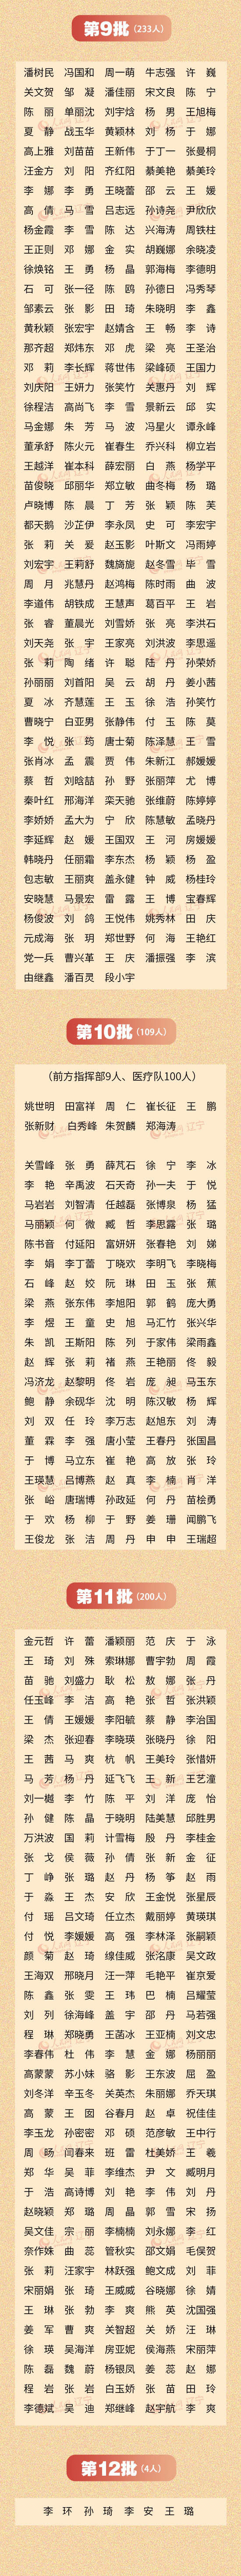 第9批(233人)
潘树民 冯国和 周一萌 牛志强 许巍
关文贺 邹凝 潘佳丽 宋文良 陈宁
陈丽 单丽沈 刘宇焓 杨男 王旭梅
夏静 战玉华 黄颖林 刘杨 于娜
高上雅 刘苗苗 王新伟 于丁一 张曼桐
汪金方 刘阳 齐红阳 綦美艳 綦美玲
李娜 李勇 王晓蕾 邵云 王媛
高倩 马雪 吕志远 孙诗尧 尹欣欣
杨金霞 李雪 陈达 兴海涛 周铁柱
王正则 邓娜 金实 胡巍娜 余晓凌
徐焕铭 王勇 杨晶 郭海梅 李德明
石可 张一径 陈鸥 孙德日 冯秀琴
邹素云 张影 田琦 朱晓明 李鑫
黄秋颖 张宏宇 赵婧含 王畅 李诗
那齐超 郑炜东 邓虎 梁亮 王圣治
邓莉 李长辉 蒋世伟 梁峰硕 王国力
刘庆阳 王妍力 张笑竹 关惠丹 刘辉
徐程洁 高尚飞 李雪 景新云 邱实
马金娜 朱芳 马波 冯星火 谭永峰
董承舒 陈火元 崔春生 乔兴科 柳立岩
王越洋 崔本科 薛宏丽 白燕 杨学平
苗俊晓 邱丽华 郑立敏 曲冬梅 杨璐
卢晓博 陈晨 丁芳 张颖 陈芙
都天鹅 沙芷伊 李永凤 史可 李宏宇
张莉 关爱 赵玉影 叶斯文 冯雨婷
刘宏宇 王莉舒 魏旖旎 赵冬雪 毕雪
周月 兆慧丹 赵鸿梅 陈时雨 曲波
李道伟 胡铁成 王慧声 葛百平 王岩
张睿 董晨光 刘雪娇 张亮 李洪石
刘天尧 张宇 王家亮 刘洪波 李思遥
张莉 陶绪 许聪 陆丹 孙荣娇
孙丽丽 刘首阳 吴云 胡丹 姜小茜
夏冰 齐慧莲 王玉 徐浩 孙笑竹
曹晓宁 白亚男 张静伟 付玉 陈莫
李悦 张筠 唐士菊 陈泽慧 王雪
张肖冰 孟震 贾伟 朱新江 郝媛媛
蔡哲 刘晗喆 孙野 张丽萍 尤博
秦叶红 邢海洋 栾天驰 张维蔚 陈婷婷
李娇娇 孟大为 宁欣 陈慧敏 孟晓丹
李延辉 赵媛 王国双 王河 房媛媛
韩晓丹 任丽霜 李东杰 杨颖 杨盈
包志敏 王丽爽 盖永健 钟威 杨桂玲
安晓慧 马景宏 雷露 王博 宝春辉
杨俊波 刘鸽 王悦伟 姚秀林 田庆
元成海 张玥 郑世野 何海 王艳红
党一兵 曹兴革 王庆 潘振强 李滨
由继鑫 潘百灵 段小宇
第10批(109人)
(前方指挥部9人、医疗队100人)
姚世明 田富祥 周仁 崔长征 王鹏
张新财 白秀峰 朱贺麟 郑海涛
关雪峰 张勇 薛芃石 徐宁 李冰
李艳 辛禹波 石天奇 孙一夫 于悦
马岩岩 刘智清 任越磊 张博泉 杨猛
马丽颖 何微 臧哲 李思露 张璐
陈书音 付延阳 富妍妍 张春艳 刘娣
李娟 李丁蕾 丁晓欢 李明飞 李晓梅
石峰 赵姣 阮琳 田玉 张蕉
梁燕 张东伟 李旭阳 郭鹤 庞大勇
李煜 王童 史旭 马汇竹 张兴华
朱凯 王斯阳 陈列 于家伟 梁雨鑫
赵辉 张莉 褚燕 王艳丽 佟毅
冯济龙 赵黎明 佟岩 庞昶 马玉东
鲍静 余砚华 沈明 陈汉敏 杨辉
刘双 任玲 李万志 赵旭东 刘涛
董霖 李强 唐小莹 王春丹 张国昌
于博 马立东 崔艳 高放 张玲
王瑛慧 吕博燕 赵真 李楠 肖洋
张峪 唐瑞博 孙政延 何丹 苗桧勇
于欢 杨柳 于野 姜珊 闻鹏飞
王俊龙 张洁 周丹 申申 王瑞超
第11批(200人)
金元哲 许蕾 潘颖丽 范庆 于泳
王琦 刘殊 索琳娜 曹宇勃 周霞
苗驰 刘盛力 耿松 敖娜 张丹
任玉峰 李洁 高艳 张哲 张洪颖
王倩 王媛媛 李阳毓 蔡静 李治国
梁杰 张迎春 李晓瑛 张晓丹 徐阳
王茜 马爽 杭帆 王美玲 张惜妍
马芳 杨丹 延飞飞 王新 王艺潼
刘一樾 李竹 陈平 刘洋 庞怡
孙健 陈晶 于晓明 陆美慧 邱胜男
万洪波 国莉 计雪梅 殷丹 李桂金
张戈 侯薇 孙倩 张新 金征
丁峥 张璐 赵丹 杨筝 赵雨
于淼 王杰 安欣 王金悦 张星辰
付瑶 吕文琦 任立杰 戴丽婷 黄瑛琪
付悦 李媛媛 高强 李林泽 张嗣颖
颜菊 赵琦 缐佳威 张洺康 吴文政
王海双 邢晓月 汪一萍 毛艳平 崔京爱
陈鑫 张雯 王玮 巴楠 吕耀莹
刘列 徐海峰 盖宇 邵丹 马若强
程琳 郑晓勇 王菡冰 王亚楠 刘文忠
李春伟 杜伟 李慧 金娜 杨丽丽
高蒙蒙 苏小妹 骆影 王东波 屈盈
刘冬洋 辛玉冬 关英杰 朱丽娜 乔天琪
高蒙 王囡 谷春月 赵卓 祝佳佳
李玉龙 孙密密 邓硕 范彦敏 王中行
周旸 闫春来 班雷 杜美娇 王羲
郑华 吴菲 李维杰 尹文 臧明月
于浩 高诗博 刘艳 李伟 刘丹
赵晓颖 郑璐 周晶 郭雪 宋扬
吴文佳 宗丽 李楠楠 刘永娜 李红
奈作姝 曲蕊 管秋实 邵文娟 毛俣贺
张莉 汪家宇 林跃强 鲍文成 刘菲
宋丽娟 张琦 王威威 谷晓娜 徐婧
王琳 张勃 李爽 熊英 沈国强
姜军 曹爽 关智超 关娇 汪琳
徐瑛 吴海洋 房亚妮 侯海燕 宋丽萍
陈磊 魏蔚 杨银凤 姜蕊 赵娜
程岩 张岩 白玉娇 张苗 田玲
李德斌 吴迪 郑继峰 赵宇航 李爽
第12批(4人)
李环 孙琦 李安 王璐